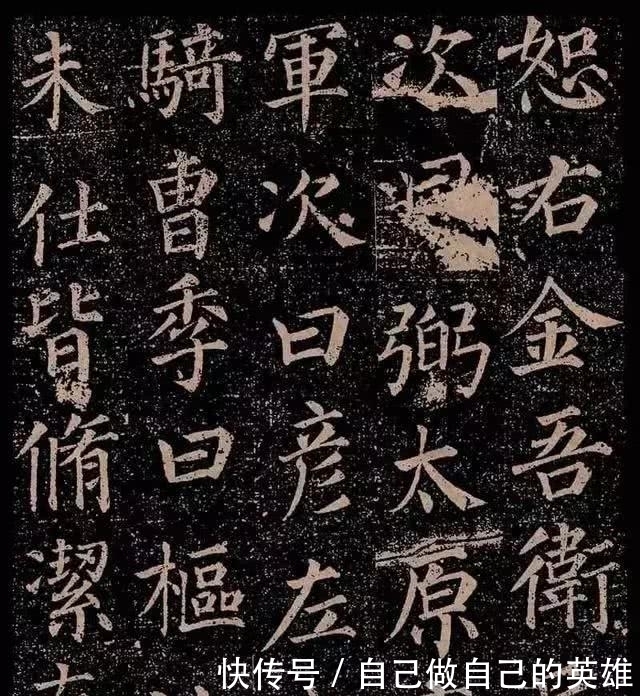 恕右金吾衛
次弼太原
軍次曰彦左
騎曺季曰樞
未仕皆脩潔
快传号 / 自己做自己的英雄